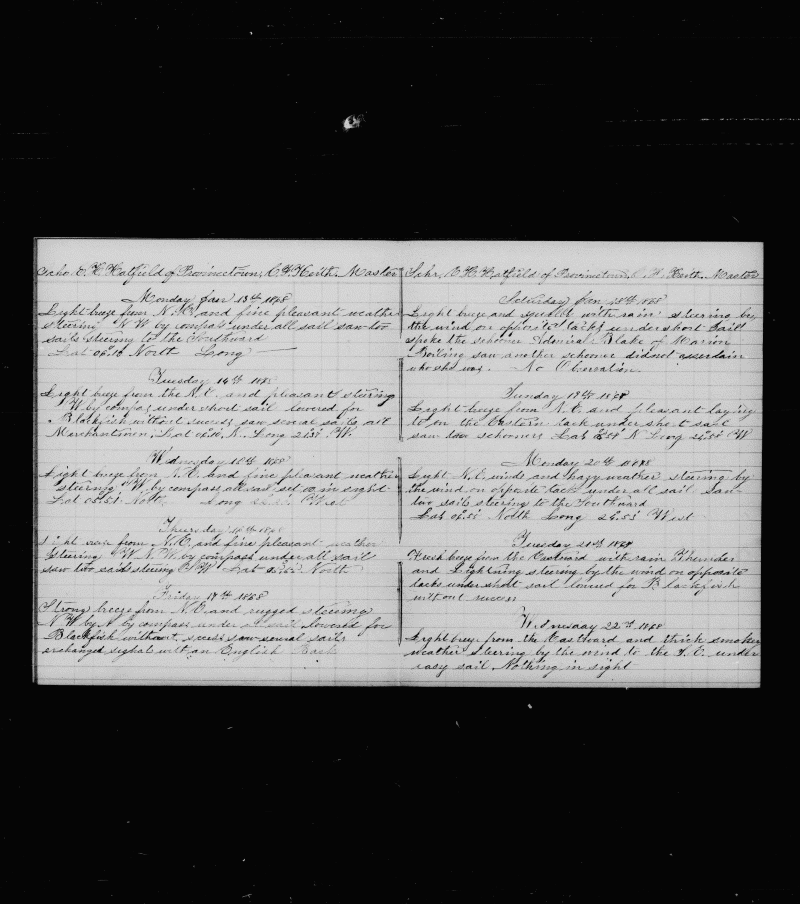 Scho. E. H. Hatfield of Provincetown, C. F. Keith. Master
Monday Jan 13th 1868
Light breeze from N. E. and fine pleasant weather
steering N W by compass under all sail saw two
sails steering to the Southward
Lat 06.16 North Long —
Tuesday 14th 1868
Light breeze from the N. E. and pleasant steering
W by compass under short sail lowered for
Blackfish without success saw several sails, all
Merchantmen, Lat N. Long W.
Wednesday 15th 1868
Light breeze from N. E. and fine pleasant weather
steering W by compass all sail set in sight
Lat 05.51 North Long West
Thursday 16th 1868
Light from N. E. and fine pleasant weather
Steering W N. W by compass under all sail
saw two sails steering S W Lat North
Friday 17th 1868
Strong breeze from N. E. and rugged steering
N W by N by compass under sail lowered for
Blackfish without success saw several sails
exchanged signals with an English Bark
Schr. E. H. Hatfield of Provincetown, C. F. Keith. Master
Saturday Jan 18th 1868
Light breeze and squalls with rain steering by
the wind on opposite tacks under short Sail
spoke the schooner Admiral Blake of Marion
Boiling saw another schooner did not assertain
who she was. No Observation.
Sunday 19th 1868
Light breeze from N. E and pleasant laying
to on the Eastern tack under short sail
saw schooners Lat N Long W
Monday 20th 1868
Light N. E. wind and hazy weather steering by
the wind on opposite tacks under all sail. Saw
two sails steering to the Southward
Lat North Long West
Tuesday 21st 1868
Fresh breeze from the Eastward with rain Thunder
and Lightning steering by the wind on opposite
tacks under short sail lowered for Blackfish
without success
Wednesday 22nd 1868
Light breeze from the Eastward and thick smokey
weather steering by the wind to the S. E. under
easy sail Nothing in sight